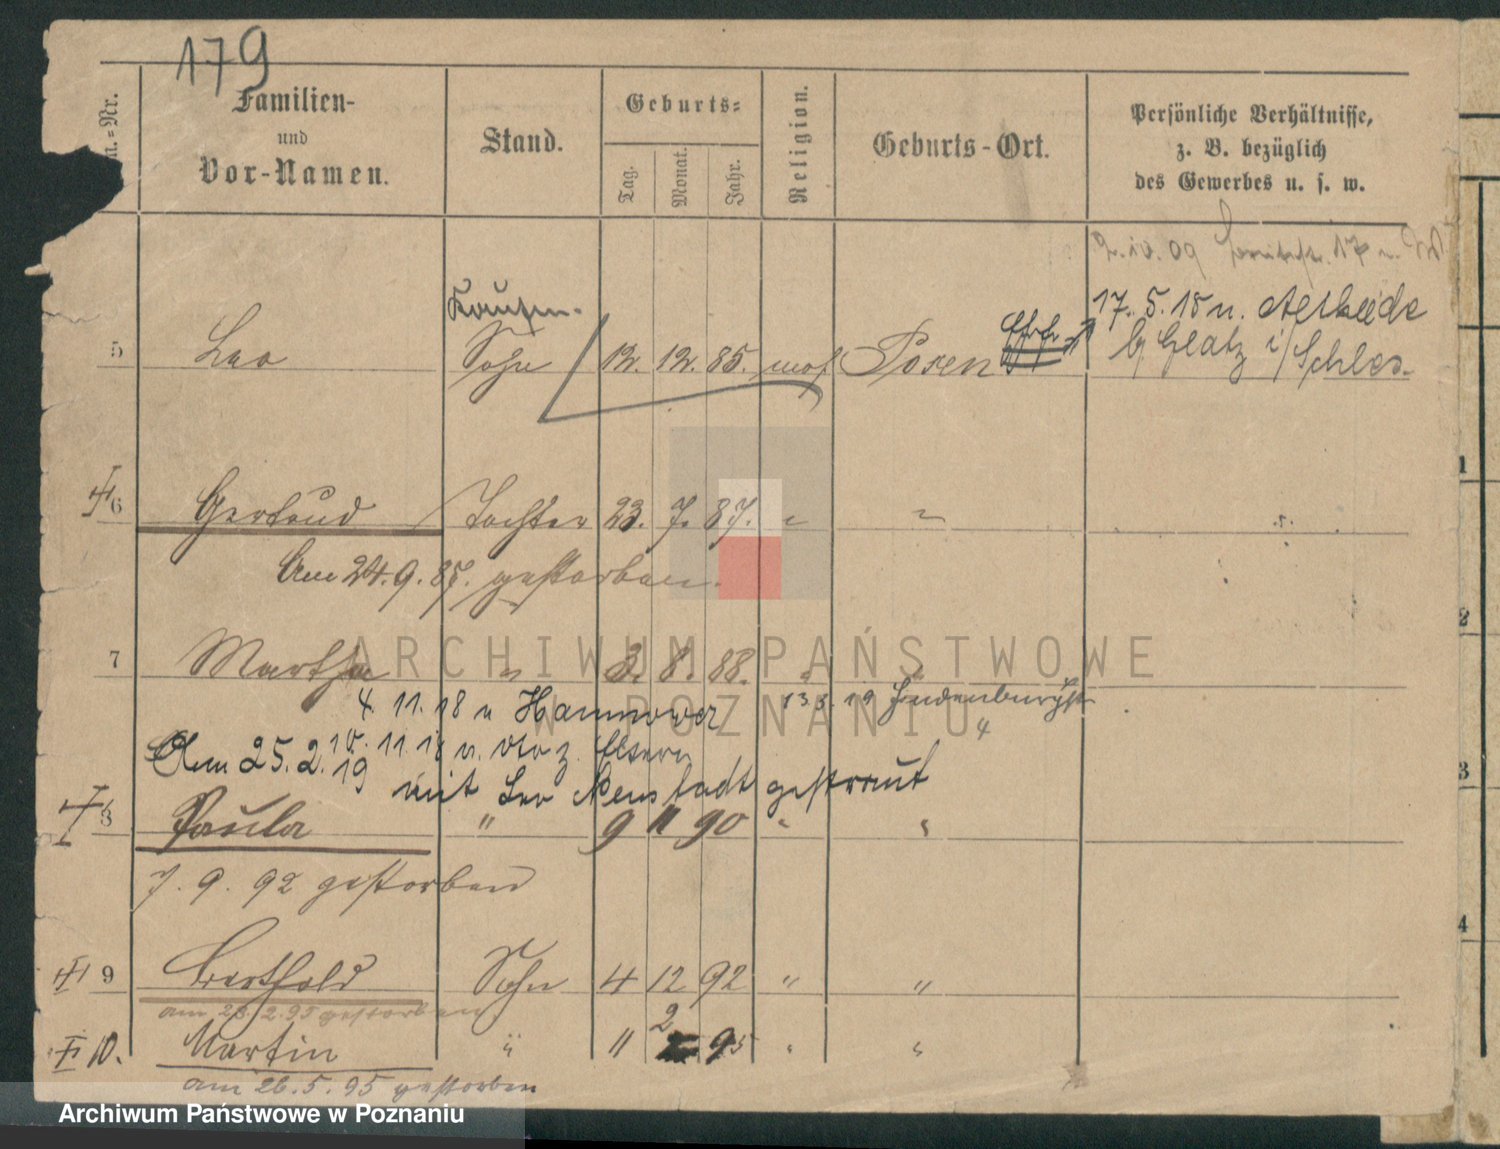 179
Familien- und Vor-Namen.
Stand.
Geburts=
Tag. Monat. Jahr.
Religion.
Geburts-Ort.
Persönliche Verhältnisse,
z. B. bezüglich
des Gewerbes u. s. w.
2.10.09 17
17. 5. 18 n.
5 Leo Sohn 12. 12. 85. mos Posen
b/ Glatz i/Schles.
6 Gertrud Tochter 23. 7. 87. " "
Am 24.9.87. gestorben.
7 Martha " 3. 8. 88. " "
4. 11. 18 n Hannover 13.3.19 Hindenburgstr 4
10. 11 18 n. v. z. Eltern
Am 25.2.19 mit Leo Neustadt getraut
8 Paula " 9 11 90 " "
7. 9. 92 gestorben
9 Berthold Sohn 4 12 92 " "
am 2.95 gestorben
10. Martin " 11 2 95 " "
am 26.5.95 gestorben
1
2
3
4
ARCHIWUM PAŃSTWOWE
W POZNANIU
Archiwum Państwowe w Poznaniu